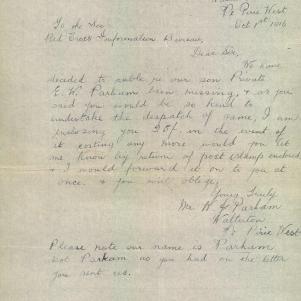 Pt Pirie West
Oct 1st 1916
To the Sec
Red Cross Information Bureau,
Dear Sir,
We have
decided to cable re our son Private
E. W. Parham been missing, & as you
said you would be so kind to
undertake the despatch of same, I am
enclosing you 20/- in the event of
it costing any more would you let
me know by return of post stamp enclosed
& I would forward it on to you at
once. & you will oblige
Yours Truly
Mr W J Parham
Wallaton
Pt Pirie West
Please note our name is Parham
not Parkam as you had on the letter
you sent us.